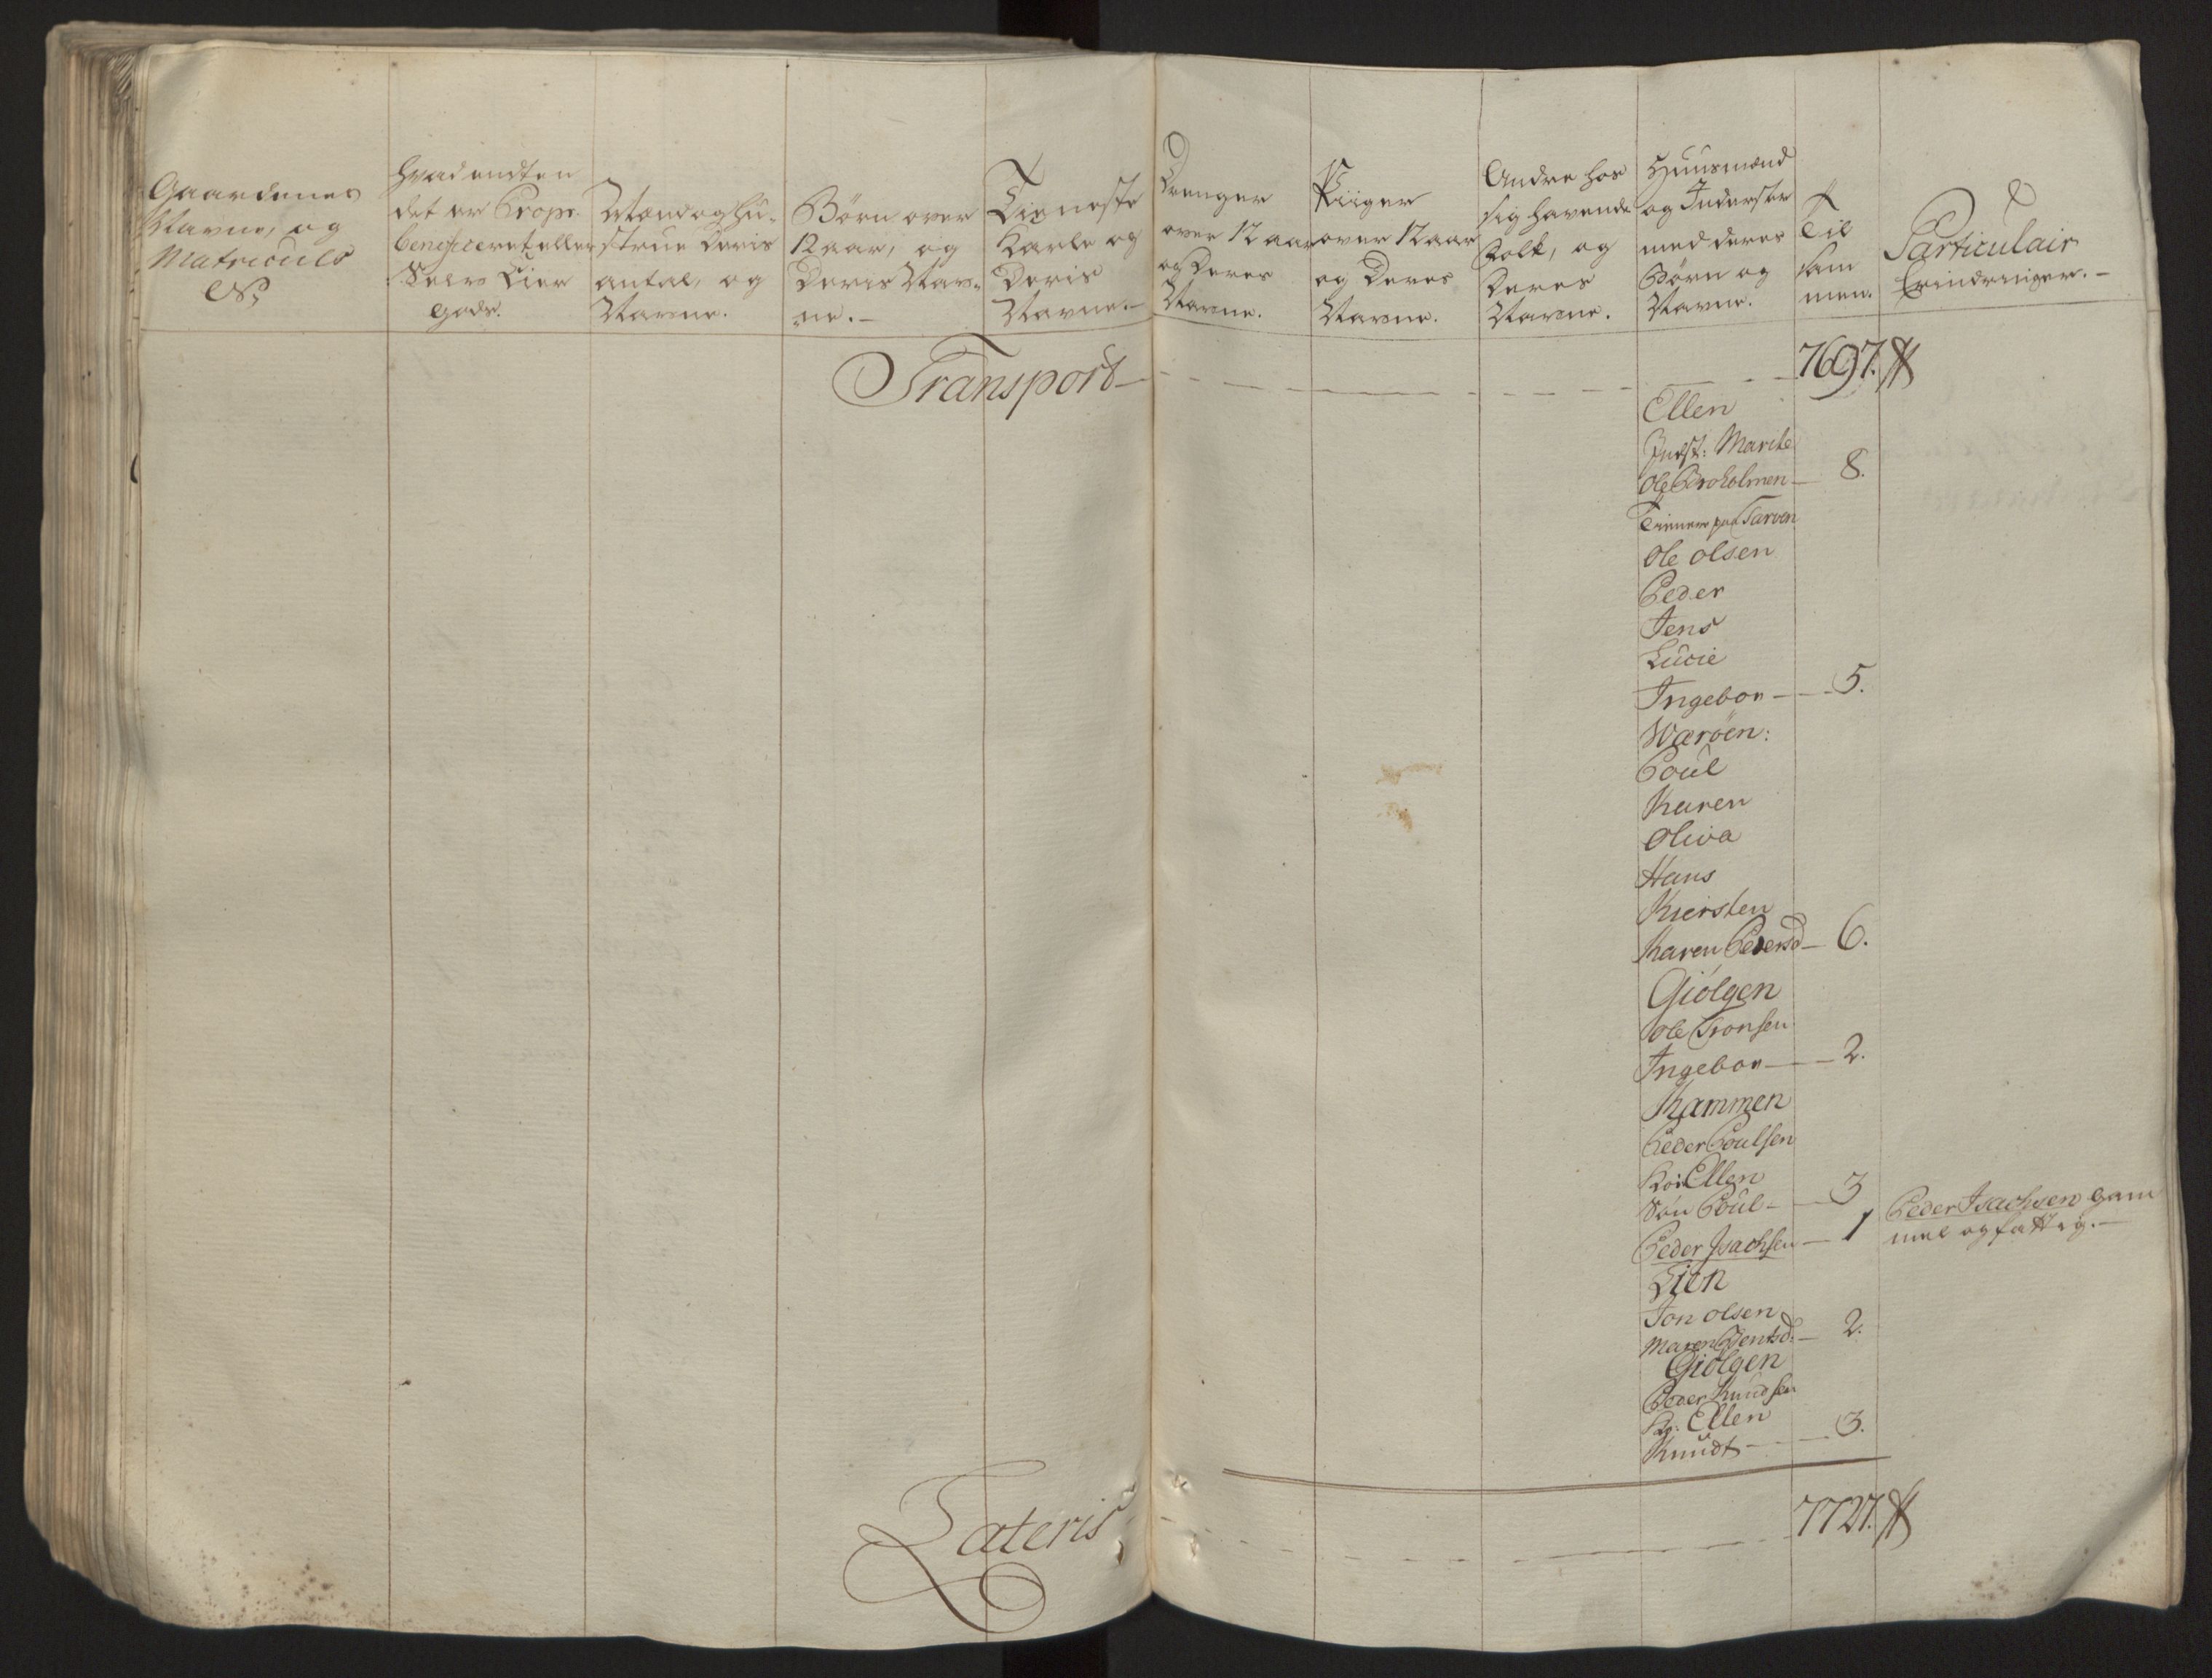 Gaardenes
Navne, og
Matriculs
No
Hvad endten
det er Propr.
beneficeret eller
Selv Eier
gods.
Mand og Hu-
strue deris
antal, og
Navne.
Børn over
12 aar, og
deris Nav-
ne.-
Tieneste
Karle og
deris
Navne.-
Drenger
over 12 aar
og deres
Navne.
Piiger
over 12 aar
og deres
Navne.
Andre hos
sig havende
Folk, og
deres
Navne.
Huusmænd
og Inderster
med deres
Børn og
Navne.
Til
sam
men.
Particulair
Erindringer.-
Transport - 7697.
Ellen
Indst: Marite
Ole Broholmen - 8.
Tienere paa Tarven
Ole olsen
Peder
Jens
Lucie
Ingebor - 5.
Værøen:
Poul
Karen
Oliva
Hans
Kiersten
Karen Pedersd - 6.
Giölgen
Ole Tronsen
Ingebor - 2.
Kammen
Peder Poulsen
Ko: Ellen
Søn Poul - 3
Peder Isachsen - 1 Peder Isachsen gam
mel og fattig.-
Lien
Jon olsen
Maren Bentsd. - 2.
Giölgen
Peder Knudsen
Ko: Ellen
Knudt - 3.
Lateris - 7727.